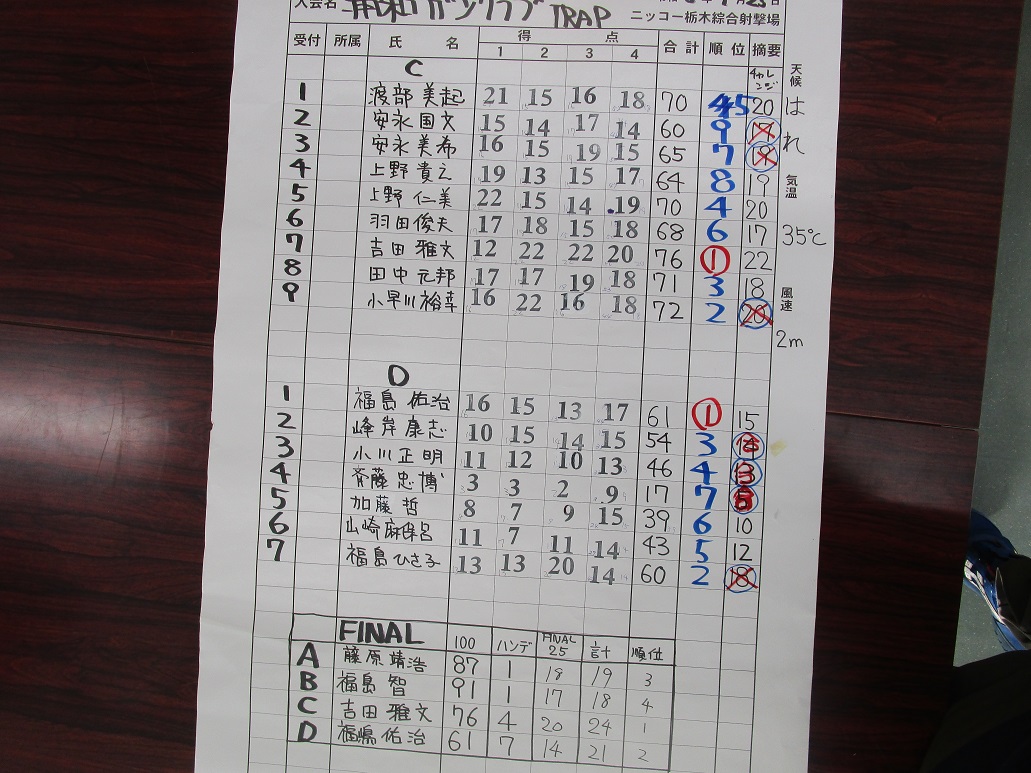 大会名 浦和ガンクラブ TRAP
ニッコー栃木綜合射撃場
受付 所属 氏 名 得 点 合計 順位 摘要
1 2 3 4
C チャレンジ
1 渡部美起 21 15 16 18 70 5 20
2 安永国文 15 14 17 14 60 9
3 安永美希 16 15 19 15 65 7
4 上野貴之 19 13 15 17 64 8 19
5 上野仁美 22 15 14 19 70 4 20
6 羽田俊夫 17 18 15 18 68 6 17
7 吉田雅文 12 22 22 20 76 1 22
8 田中元邦 17 17 19 18 71 3 18
9 小早川裕幸 16 22 16 18 72 2 20
天候
はれ
気温
35℃
風速
2m
D
1 福島佑治 16 15 13 17 61 1 15
2 峰岸康志 10 15 14 15 54 3
3 小川正明 11 12 10 13 46 4 13
4 斉藤忠博 3 3 2 9 17 7
5 加藤哲 8 7 9 15 39 6 10
6 山崎麻保呂 11 7 11 14 43 5 12
7 福島ひさ子 13 13 20 14 60 2 18
FINAL 100 ハンデ FINAL 25 計 順位
A 藤原靖浩 87 1 18 19 3
B 福島智 91 1 17 18 4
C 吉田雅文 76 4 20 24 1
D 福嶋佑治 61 7 14 21 2